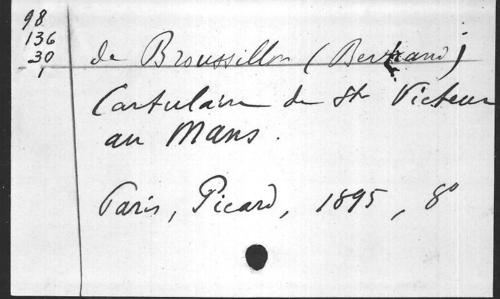 98
136
30
1
de Broussillon (Bertrand)
Cartulaire de St Victeur
au Mans.
Paris, Picard, 1895, 8º